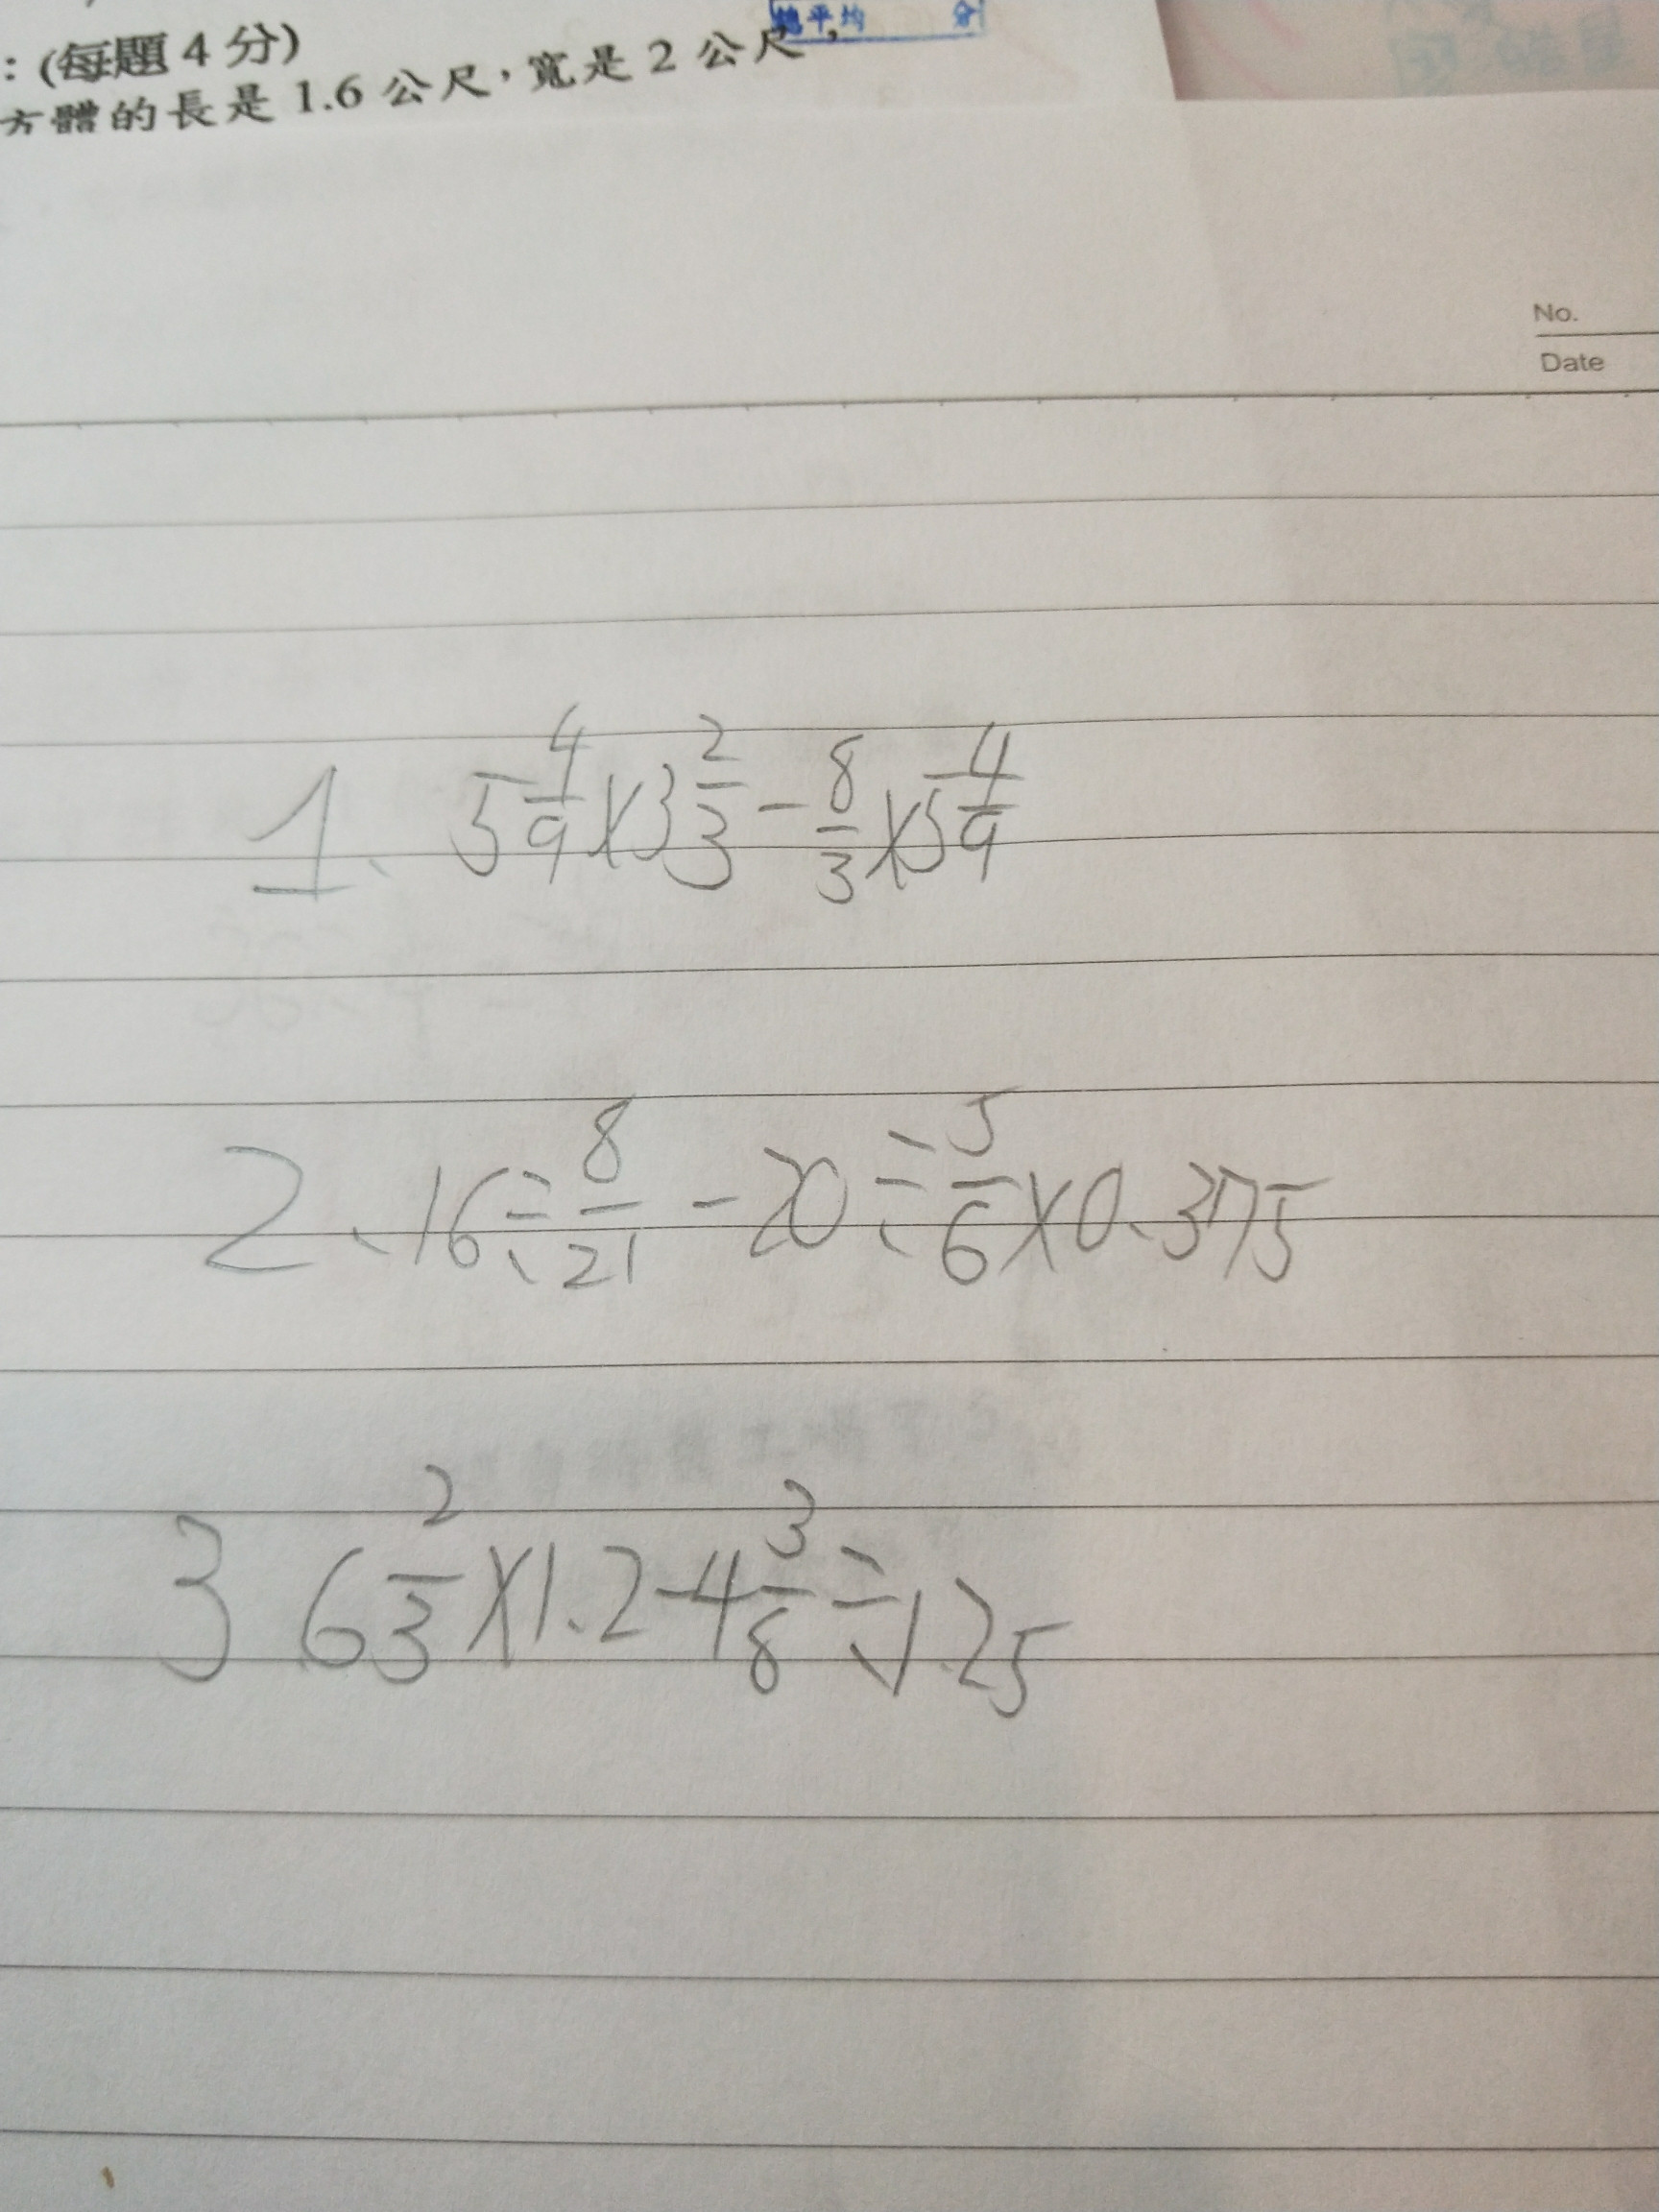 總平均 分
：(每題 4 分)
方體的長是 1.6 公尺，寬是 2 公尺，
No.
Date
1、5 4/9 × 3 2/3 − 8/3 × 5 4/9
2、16 ÷ 8/21 − 20 ÷ 5/6 × 0.375
3 6 2/3 × 1.2 − 4 3/8 ÷ 1.25